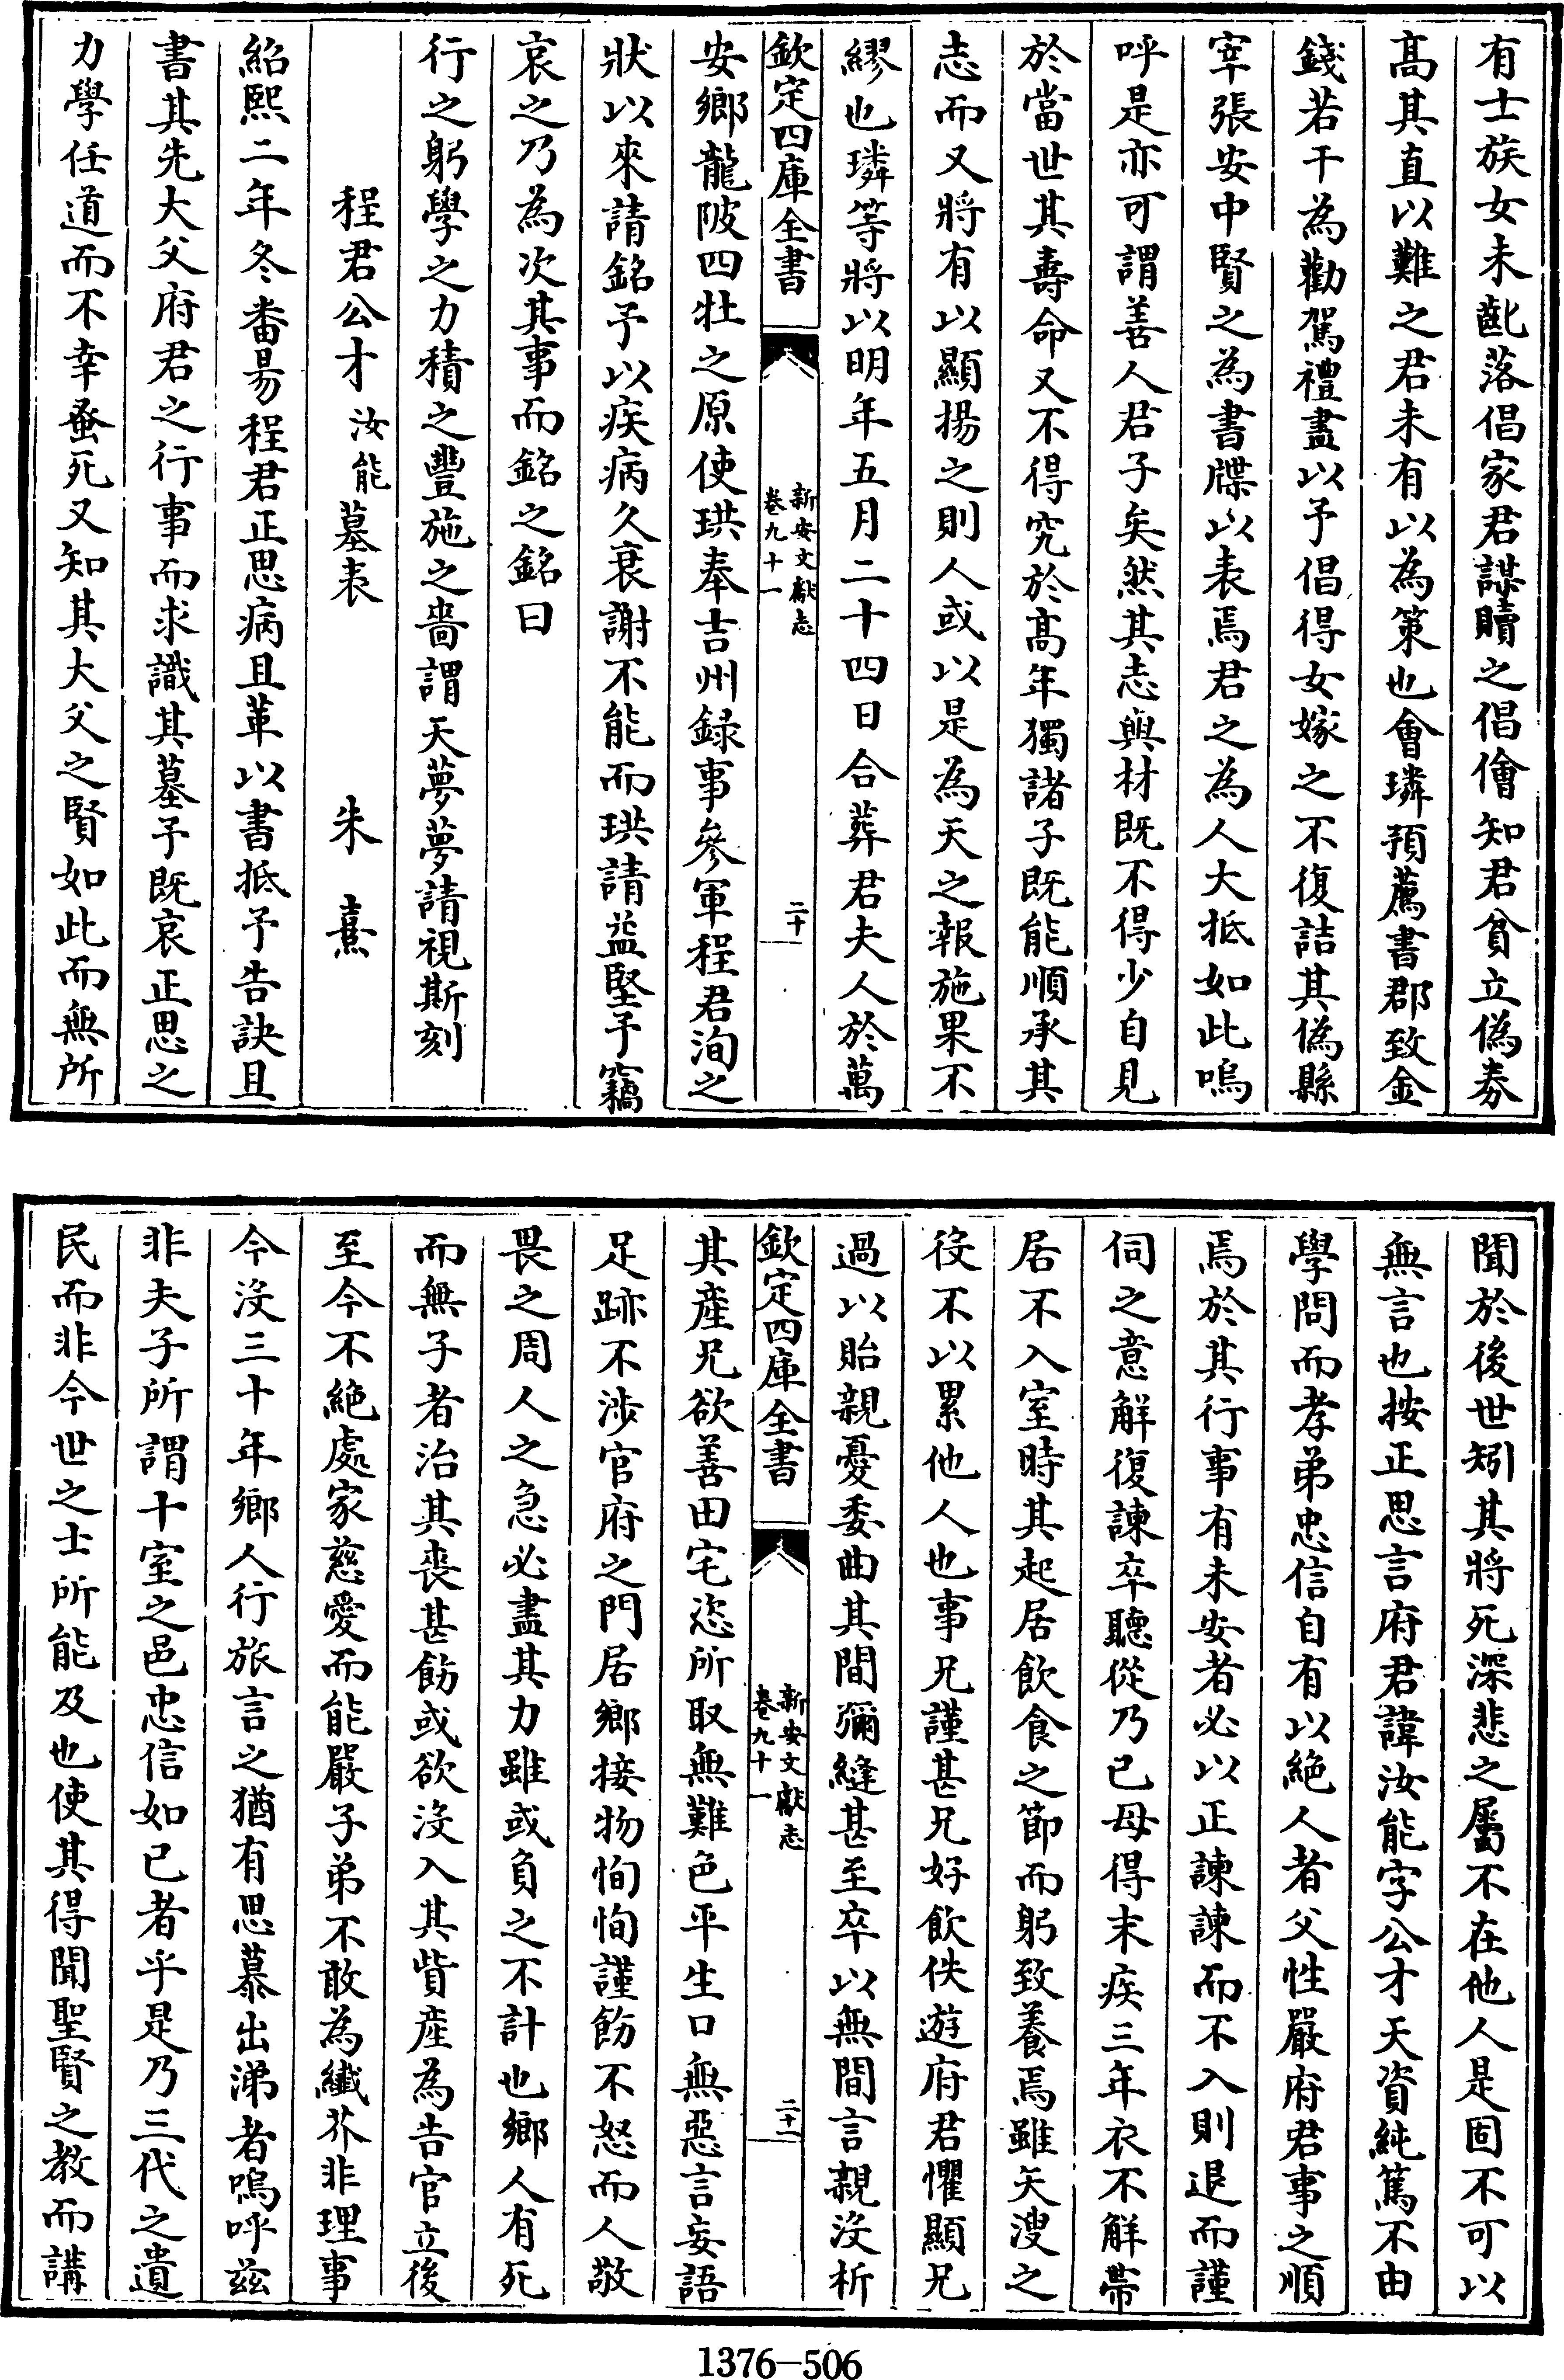 有士族女未齔落倡家君謀贖之倡儈知君貧立偽劵
髙其直以難之君未有以為策也會璘預薦書郡致金
錢若干為勸駕禮盡以予倡得女嫁之不復詰其偽縣
宰張安中賢之為書牒以表焉君之為人大抵如此嗚
呼是亦可謂善人君子矣然其志與材既不得少自見
於當世其壽命又不得究於髙年獨諸子既能順承其
志而又將有以顯揚之則人或以是為天之報施果不
繆也璘等將以明年五月二十四日合葬君夫人於萬
欽定四庫全書
新安文獻志
卷九十一
二十
安鄉龍陂四壯之原使珙奉吉州録事參軍程君洵之
狀以來請銘予以疾病久衰謝不能而珙請益堅予竊
哀之乃為次其事而銘之銘曰
行之躬學之力積之豐施之嗇謂天夢夢請視斯刻
程君公才汝能墓表 朱熹
紹熙二年冬番昜程君正思病且革以書抵予告訣且
書其先大父府君之行事而求識其墓予既哀正思之
力學任道而不幸蚤死又知其大父之賢如此而無所
聞於後世矧其將死深悲之屬不在他人是固不可以
無言也按正思言府君諱汝能字公才天資純篤不由
學問而孝弟忠信自有以絶人者父性嚴府君事之順
焉於其行事有未安者必以正諫諫而不入則退而謹
伺之意解復諫卒聽從乃已母得末疾三年衣不解帶
居不入室時其起居飲食之節而躬致養焉雖矢溲之
役不以累他人也事兄謹甚兄好飲佚遊府君懼顯兄
過以貽親憂委曲其間彌縫甚至卒以無間言親沒析
欽定四庫全書
新安文獻志
卷九十一
二十一
其產兄欲善田宅恣所取無難色平生口無惡言妄語
足跡不涉官府之門居鄉接物恂恂謹飭不怒而人敬
畏之周人之急必盡其力雖或負之不計也鄉人有死
而無子者治其喪甚飭或欲沒入其貲産為告官立後
至今不絶處家慈愛而能嚴子弟不敢為纖芥非理事
今沒三十年鄉人行旅言之猶有思慕出涕者嗚呼兹
非夫子所謂十室之邑忠信如已者乎是乃三代之遺
民而非今世之士所能及也使其得聞聖賢之教而講
1376-506